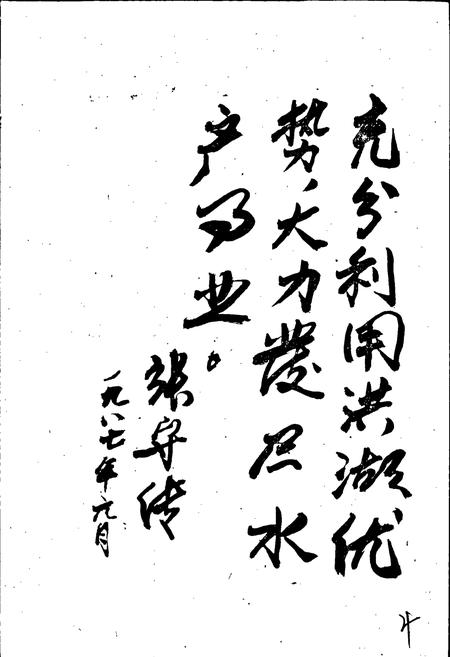 充分利用洪湖优
势、大力發展水
产事业。
张守传
一九八七年六月